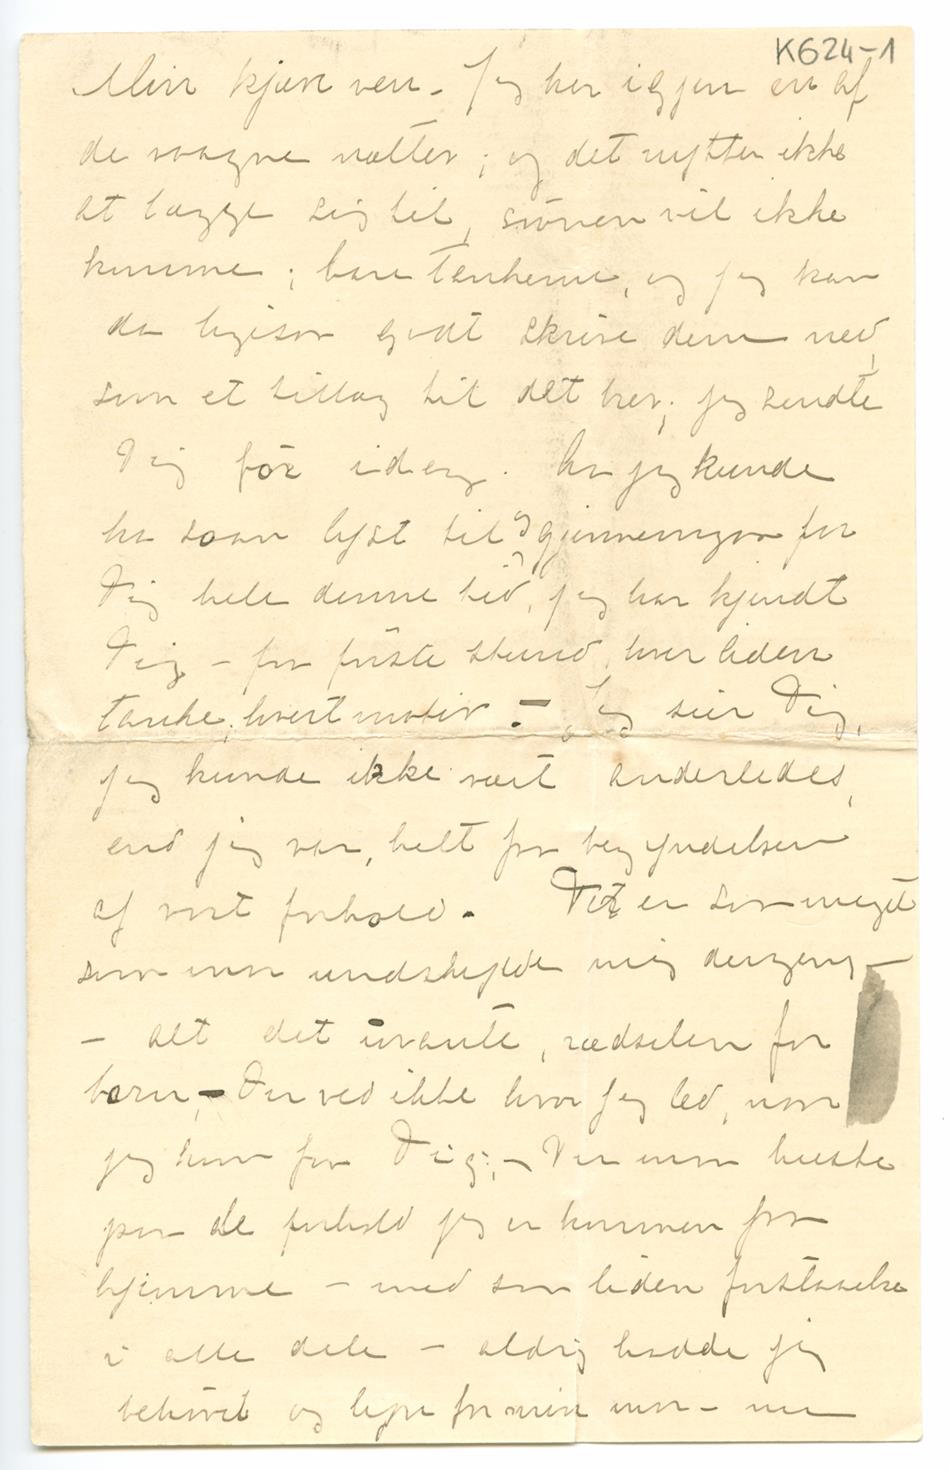 K624-1
Min kjære ven – Jeg har igjen en af
de vaagne nætter; og det nytter ikke
at lægge sig til, søvnen vil ikke
komme; bare tankerne, og jeg kan
da ligesaa godt skrive dem ned,
som et tillæg til det brev, jeg sendte
Dig før idag. Aa jeg kunde
ha saan lyst til at gjennemgaa for
Dig hele denne tid, jeg har kjendt
Dig – fra første stund, hver liden
tanke, hvert motiv. – Jeg sier Dig,
jeg kunde ikke vært anderledes,
end jeg var, helt fra begyndelsen
af vort forhold. Det er saa meget
som maa undskylde mig dengang –
– alt det uvante, rædselen for
barn, – Du ved ikke hvor jeg led, naar
jeg kom fra Dig; – Du maa huske
paa de forhold jeg er kommen fra
hjemme – med saa liden forstaaelse
i alle dele – aldrig hadde jeg
behøvet og lyve for min mor – nu